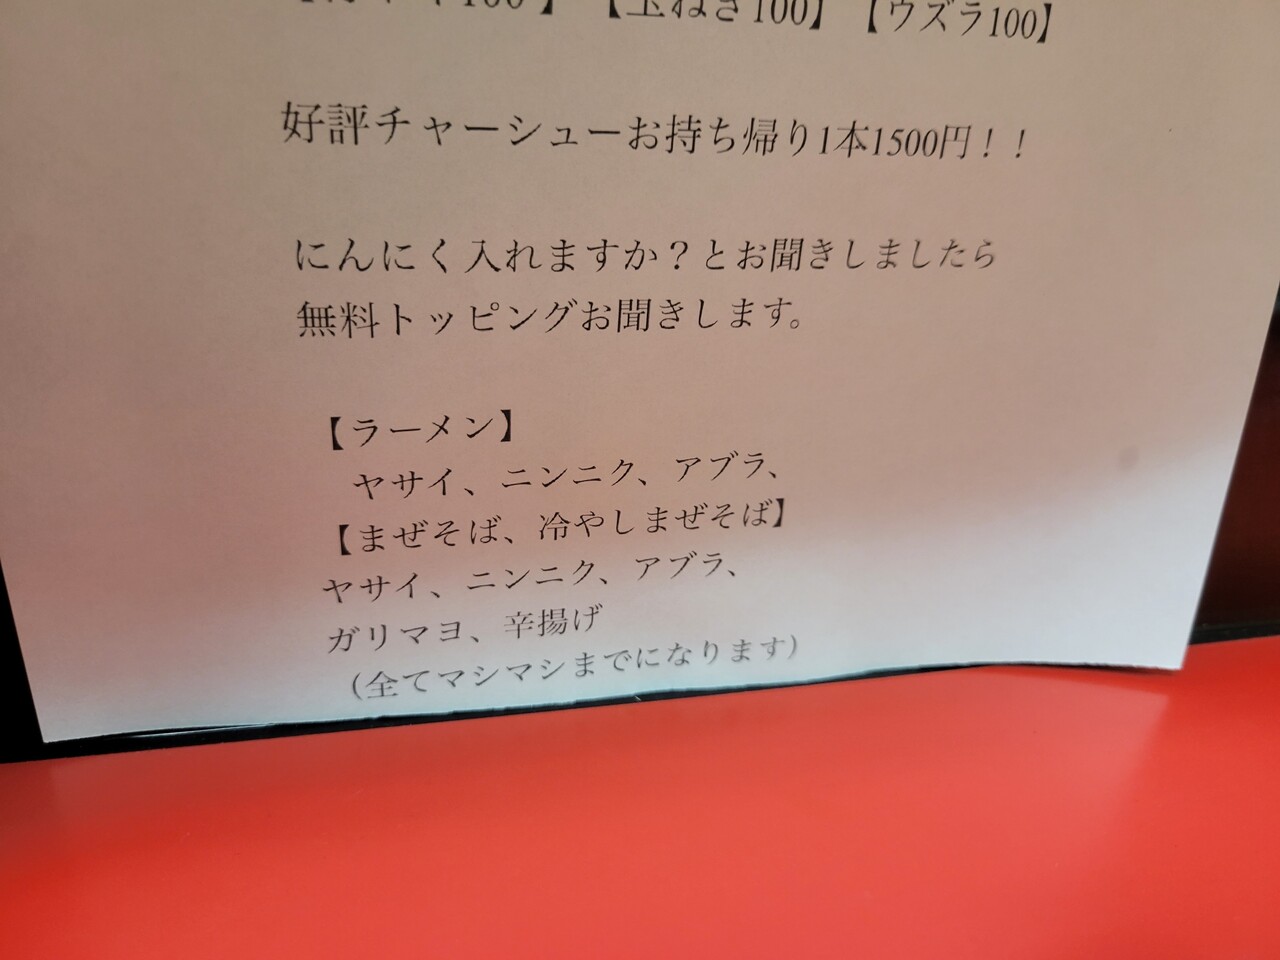 【玉ねぎ100】【ウズラ100】
好評チャーシューお持ち帰り1本1500円！！
にんにく入れますか？とお聞きしましたら
無料トッピングお聞きします。
【ラーメン】
ヤサイ、ニンニク、アブラ、
【まぜそば、冷やしまぜそば】
ヤサイ、ニンニク、アブラ、
ガリマヨ、辛揚げ
（全てマシマシまでになります）